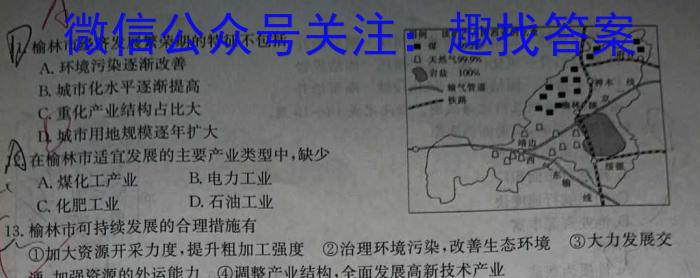 微信公众号关注：趣找答案
榆林市经济发展繁荣期的特征不包括
A. 环境污染逐渐改善
B. 城市化水平逐渐提高
C. 重化产业结构占比大
D. 城市用地规模逐年扩大
在榆林市适宜发展的主要产业类型中,缺少
A. 煤化工产业 B. 电力工业
C. 化肥工业 D. 石油工业
13. 榆林市可持续发展的合理措施有
①加大资源开采力度,提升粗加工强度 ②治理环境污染,改善生态环境 ③大力发展交
通,加强资源的外运能力 ④调整产业结构,全面发展高新技术产业
煤
天然气99.9%
岩盐 100%
输气管道
铁路
神木
榆林
靖边
绥德
线